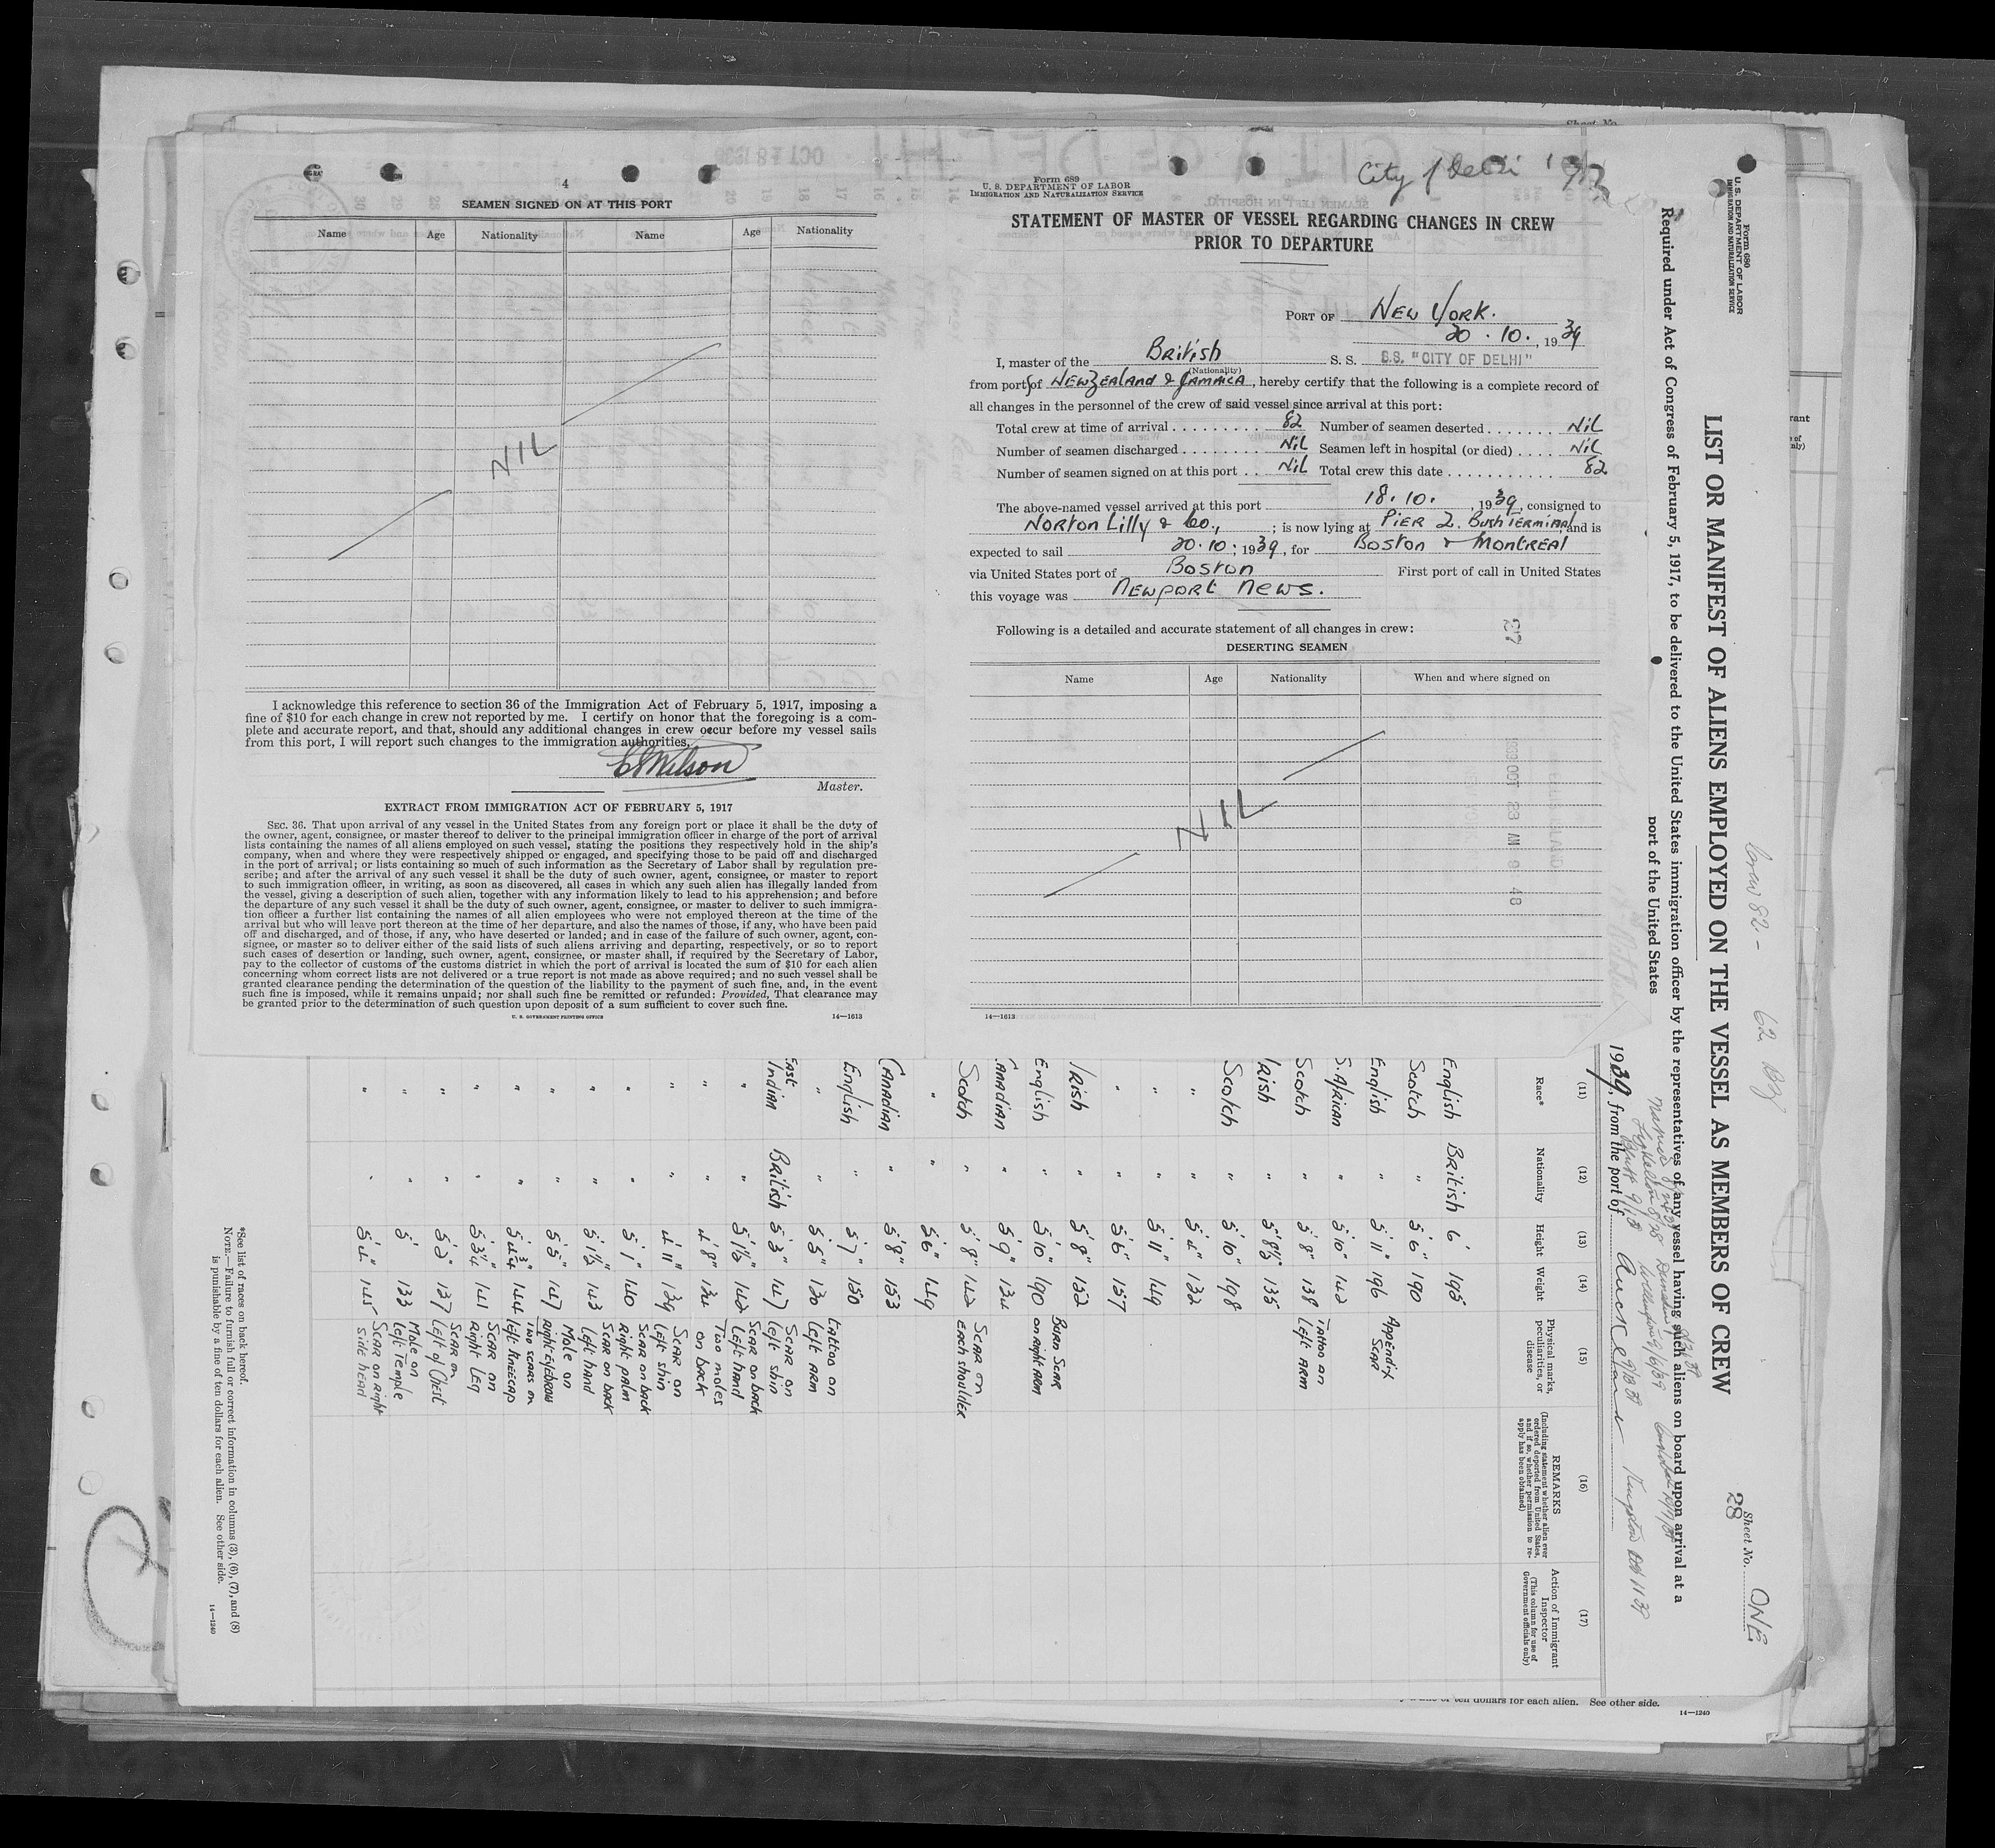 4
SEAMEN SIGNED ON AT THIS PORT
Name Age Nationality Name Age Nationality
NIL
I acknowledge this reference to section 36 of the Immigration Act of February 5, 1917, imposing a
fine of $10 for each change in crew not reported by me. I certify on honor that the foregoing is a com-
plete and accurate report, and that, should any additional changes in crew occur before my vessel sails
from this port, I will report such changes to the immigration authorities.
Master.
EXTRACT FROM IMMIGRATION ACT OF FEBRUARY 5, 1917
SEC. 36. That upon arrival of any vessel in the United States from any foreign port or place it shall be the duty of
the owner, agent, consignee, or master thereof to deliver to the principal immigration officer in charge of the port of arrival
lists containing the names of all aliens employed on such vessel, stating the positions they respectively hold in the ship's
company, when and where they were respectively shipped or engaged, and specifying those to be paid off and discharged
in the port of arrival; or lists containing so much of such information as the Secretary of Labor shall by regulation pre-
scribe; and after the arrival of any such vessel it shall be the duty of such owner, agent, consignee, or master to report
to such immigration officer, in writing, as soon as discovered, all cases in which any such alien has illegally landed from
the vessel, giving a description of such alien, together with any information likely to lead to his apprehension; and before
the departure of any such vessel it shall be the duty of such owner, agent, consignee, or master to deliver to such immigra-
tion officer a further list containing the names of all alien employees who were not employed thereon at the time of the
arrival but who will leave port thereon at the time of her departure, and also the names of those, if any, who have been paid
off and discharged, and of those, if any, who have deserted or landed; and in case of the failure of such owner, agent, con-
signee, or master so to deliver either of the said lists of such aliens arriving and departing, respectively, or so to report
such cases of desertion or landing, such owner, agent, consignee, or master shall, if required by the Secretary of Labor,
pay to the collector of customs of the customs district in which the port of arrival is located the sum of $10 for each alien
concerning whom correct lists are not delivered or a true report is not made as above required; and no such vessel shall be
granted clearance pending the determination of the question of the liability to the payment of such fine, and, in the event
such fine is imposed, while it remains unpaid; nor shall such fine be remitted or refunded: Provided, That clearance may
be granted prior to the determination of such question upon deposit of a sum sufficient to cover such fine.
U. S. GOVERNMENT PRINTING OFFICE 14—1613
City of Delhi
Form 689
U. S. DEPARTMENT OF LABOR
IMMIGRATION AND NATURALIZATION SERVICE
STATEMENT OF MASTER OF VESSEL REGARDING CHANGES IN CREW
PRIOR TO DEPARTURE
PORT OF NEW YORK.
20. 10., 1939
I, master of the British S. S. S.S. "CITY OF DELHI"
(Nationality)
from port of NEW ZEALAND & JAMAICA, hereby certify that the following is a complete record of
all changes in the personnel of the crew of said vessel since arrival at this port:
Total crew at time of arrival 82 Number of seamen deserted Nil
Number of seamen discharged Nil Seamen left in hospital (or died) Nil
Number of seamen signed on at this port Nil Total crew this date 82
The above-named vessel arrived at this port 18. 10., 1939, consigned to
Norton Lilly & Co., ; is now lying at PIER 2. Bush TERMINAL and is
expected to sail 20. 10; 1939, for Boston & Montreal
via United States port of Boston First port of call in United States
this voyage was Newport News.
Following is a detailed and accurate statement of all changes in crew:
DESERTING SEAMEN
Name Age Nationality When and where signed on
NIL
14—1613
Form 680
U. S. DEPARTMENT OF LABOR
IMMIGRATION AND NATURALIZATION SERVICE
Crew 82 -
Sheet No. ONE
28
LIST OR MANIFEST OF ALIENS EMPLOYED ON THE VESSEL AS MEMBERS OF CREW
Required under Act of Congress of February 5, 1917, to be delivered to the United States immigration officer by the representatives of any vessel having such aliens on board upon arrival at a
port of the United States
1939, from the port of Auckland
(11) (12) (13) (14) (15) (16) (17)
Race* Nationality Height Weight Physical marks, peculiarities, or disease REMARKS (Including statement whether alien ever ordered deported from United States, and if so, whether permission to re-apply has been obtained) Action of Immigrant Inspector (This column for use of Government officials only)
English British 6' 195
Scotch " 5'6" 190
English " 5'11" 196 Appendix Scar
S. African " 5'10" 142
Scotch " 5'8" 138 Tattoo on Left Arm
Irish " 5'8½" 135
Scotch " 5'10" 198
" " 5'4" 132
" " 5'11" 149
" " 5'6" 157
Irish " 5'8" 152
English " 5'10" 190 Burn Scar on Right Arm
Canadian " 5'9" 134
Scotch " 5'8" 142 Scar on Each shoulder
" " 5'6" 149
Canadian " 5'8" 153
English " 5'7" 150
" " 5'5" 130 Tattoo on Left Arm
East Indian British 5'3" 147 Scar on left shin
" " 5'1½" 142 Scar on back Left hand
" " 4'8" 124 Two moles on back
" " 4'11" 129 Scar on left shin
" " 5'1" 140 Scar on back Right palm
" " 5'1½" 143 Scar on back left hand
" " 5'5" 147 Mole on Right eyebrow
" " 5'4¾" 144 Two scars on left kneecap
" " 5'3¼" 141 Scar on Right Leg
" " 5'2" 137 Scar on Left of Chest
" " 5' 133 Mole on Left Temple
" " 5'4" 145 Scar on right side head
*See list of races on back hereof.
NOTE.—Failure to furnish full or correct information in columns (3), (6), (7), and (8)
is punishable by a fine of ten dollars for each alien. See other side.
14—1240
of ten dollars for each alien. See other side.
14—1240